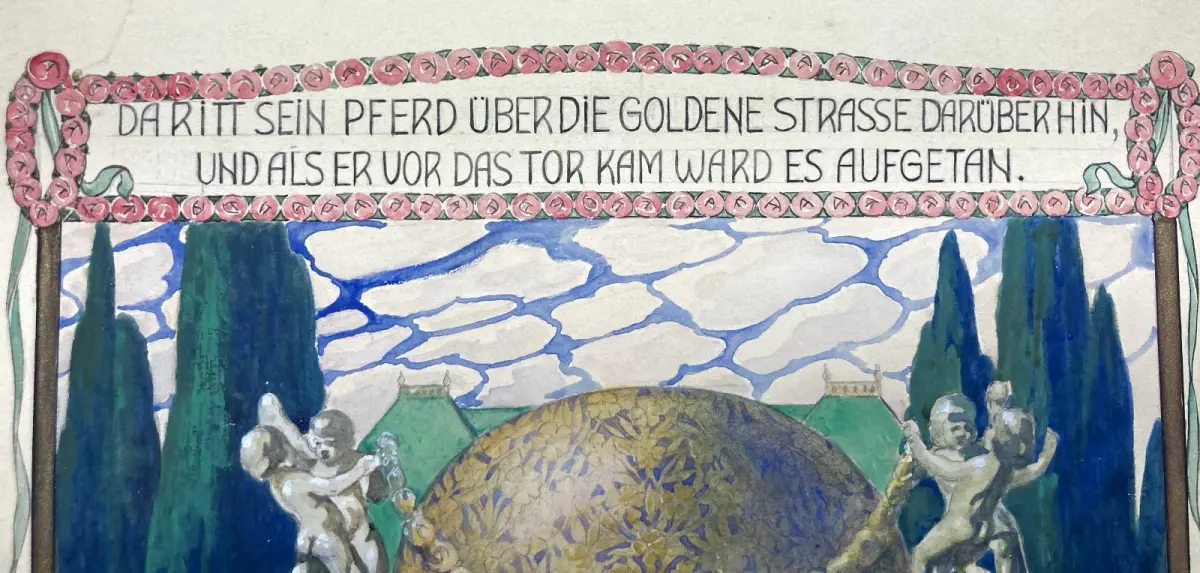 DA RITT SEIN PFERD ÜBER DIE GOLDENE STRASSE DARÜBER HIN,
UND ALS ER VOR DAS TOR KAM WARD ES AUFGETAN.